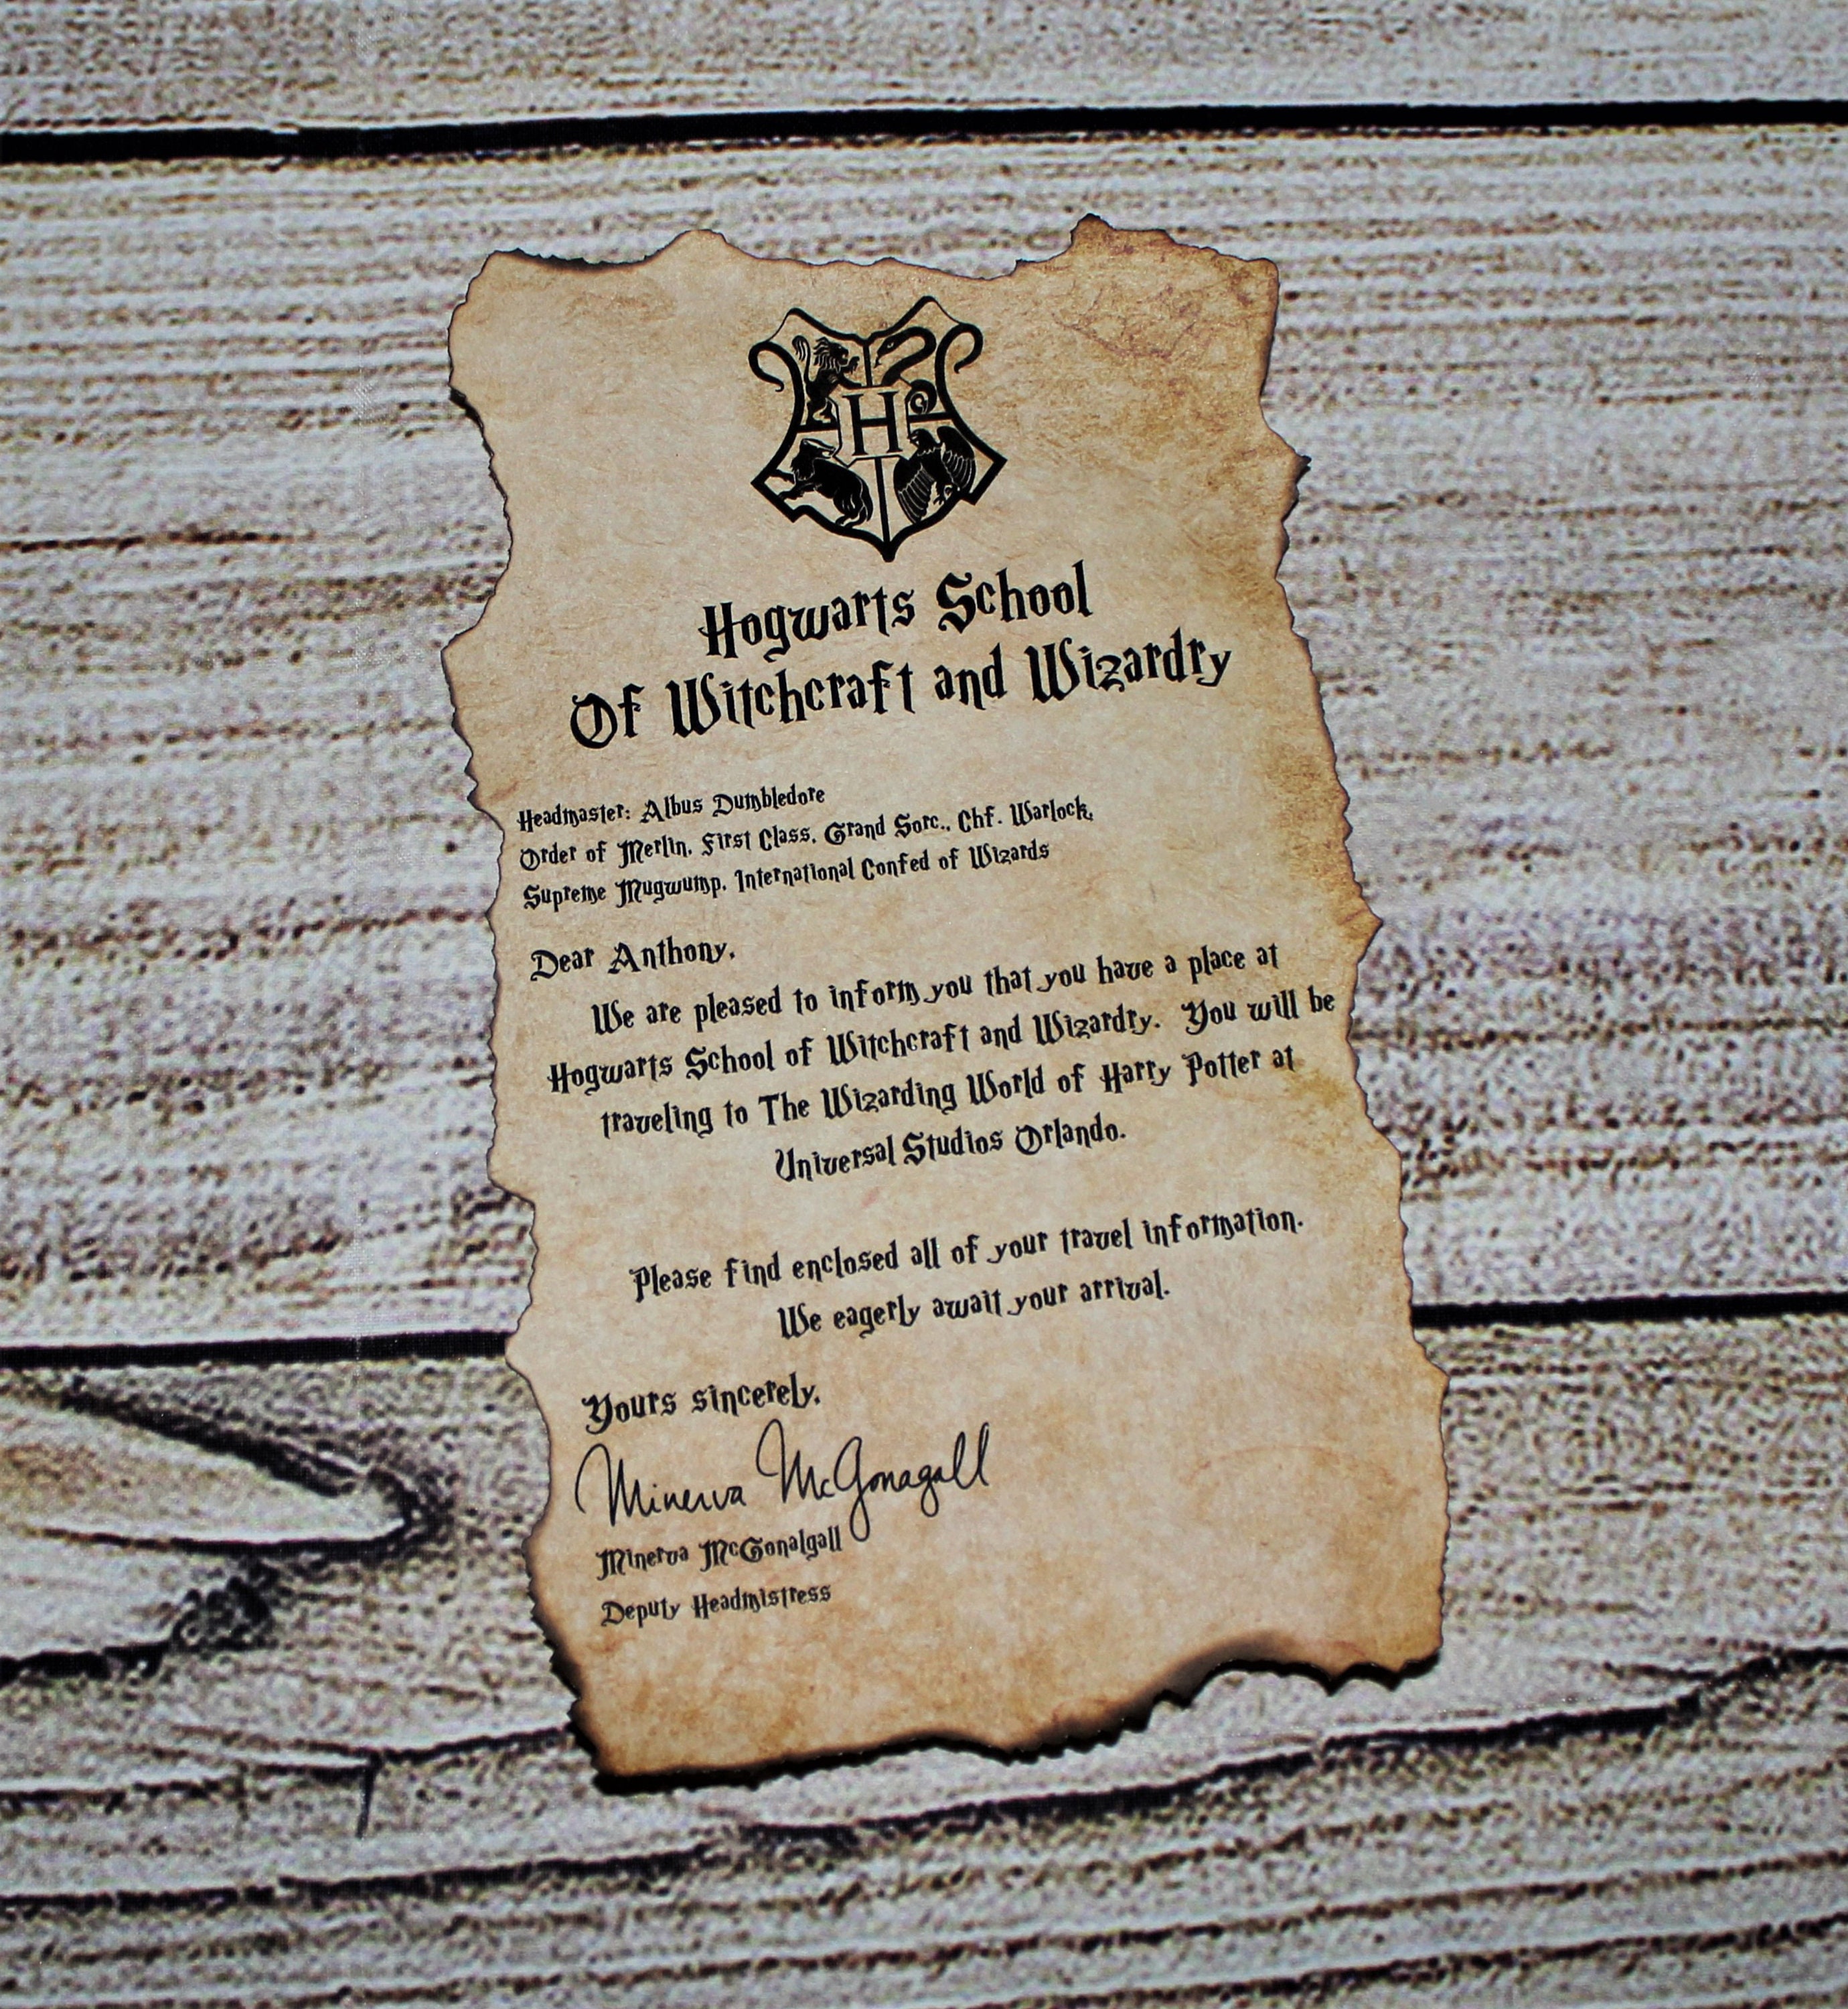 H
Hogwarts School
Of Witchcraft and Wizardry
Headmaster: Albus Dumbledore
Order of Merlin, First Class, Grand Sorc., Chf. Warlock,
Supreme Mugwump, International Confed of Wizards
Dear Anthony,
We are pleased to inform you that you have a place at
Hogwarts School of Witchcraft and Wizardry. You will be
traveling to The Wizarding World of Harry Potter at
Universal Studios Orlando.
Please find enclosed all of your travel information.
We eagerly await your arrival.
Yours sincerely,
Minerva McGonagall
Minerva McGonalgall
Deputy Headmistress